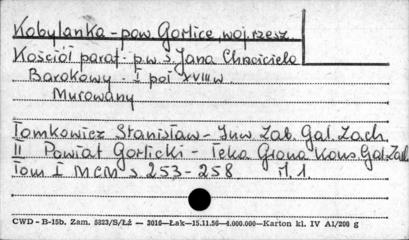 Kobylanka - pow. Gorlice, woj. rzesz.
Kościół paraf. p.w. s. Jana Chrzciciela
Barokowy - I poł XVIII w.
Murowany
Tomkowicz Stanisław - Inw. Zab. Gal. Zach.
II Powiat Gorlicki - Teka Grona Kons. Gal. Zach.
Tom I MCM s. 253 - 258 il. 1.
CWD - B-15b. Zam. 5823/S/ŁŻ — 3016—Łak—15.11.56—4.000.000—Karton kl. IV A1/200 g